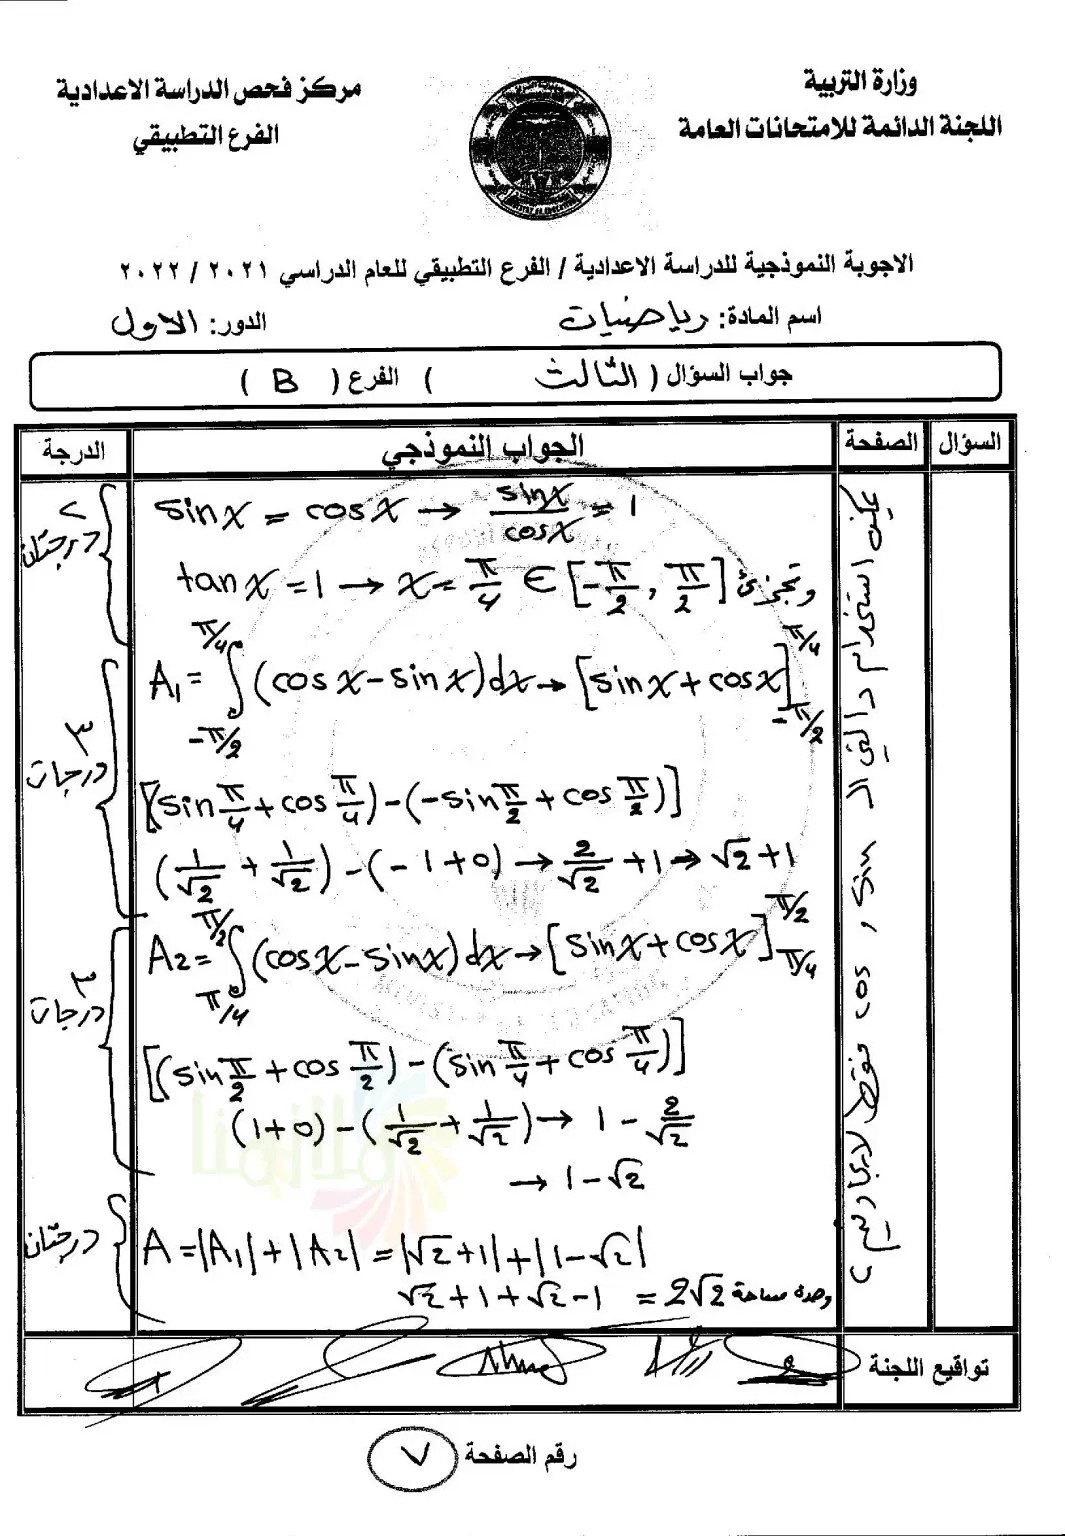 وزارة التربية
اللجنة الدائمة للامتحانات العامة
مركز فحص الدراسة الاعدادية
الفرع التطبيقي
الاجوبة النموذجية للدراسة الاعدادية / الفرع التطبيقي للعام الدراسي ٢٠٢١ / ٢٠٢٢
اسم المادة: رياضيات الدور: الاول
جواب السؤال ( الثالث ) الفرع ( B )
السؤال الصفحة الجواب النموذجي الدرجة
sin x = cos x → sin x / cos x = 1
tan x = 1 → x = π/4 ∈ [-π/2, π/2] وتجزئ
درجتان ٢
A₁ = ∫_{-π/2}^{π/4} (cos x - sin x) dx → [sin x + cos x]_{-π/2}^{π/4}
[(sin π/4 + cos π/4) - (-sin π/2 + cos π/2)]
(1/√2 + 1/√2) - (-1+0) → 2/√2 + 1 → √2+1
٣ درجات
A2 = ∫_{π/4}^{π/2} (cos x - sin x) dx → [sin x + cos x]_{π/4}^{π/2}
[(sin π/2 + cos π/2) - (sin π/4 + cos π/4)]
(1+0) - (1/√2 + 1/√2) → 1 - 2/√2
→ 1-√2
٣ درجات
A = |A₁| + |A₂| = |√2+1| + |1-√2|
√2+1+√2-1 = 2√2 وحدة مساحة
درجتان
يمكن استخدام دالتي الـ sin , cos فقط لايجاد
تواقيع اللجنة
رقم الصفحة ٧
ملازمنا